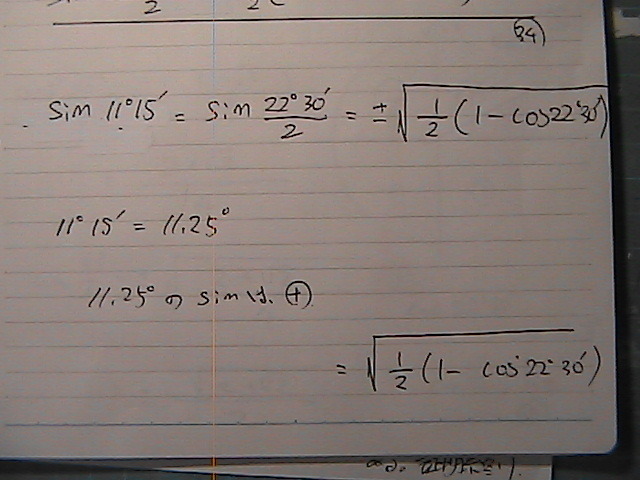 2 2(
(34)
sin 11°15′ = sin 22°30′/2 = ±√(1/2(1 - cos22°30′))
11°15′ = 11.25°
11.25° の sin は. ⊕
= √(1/2(1 - cos 22°30′))